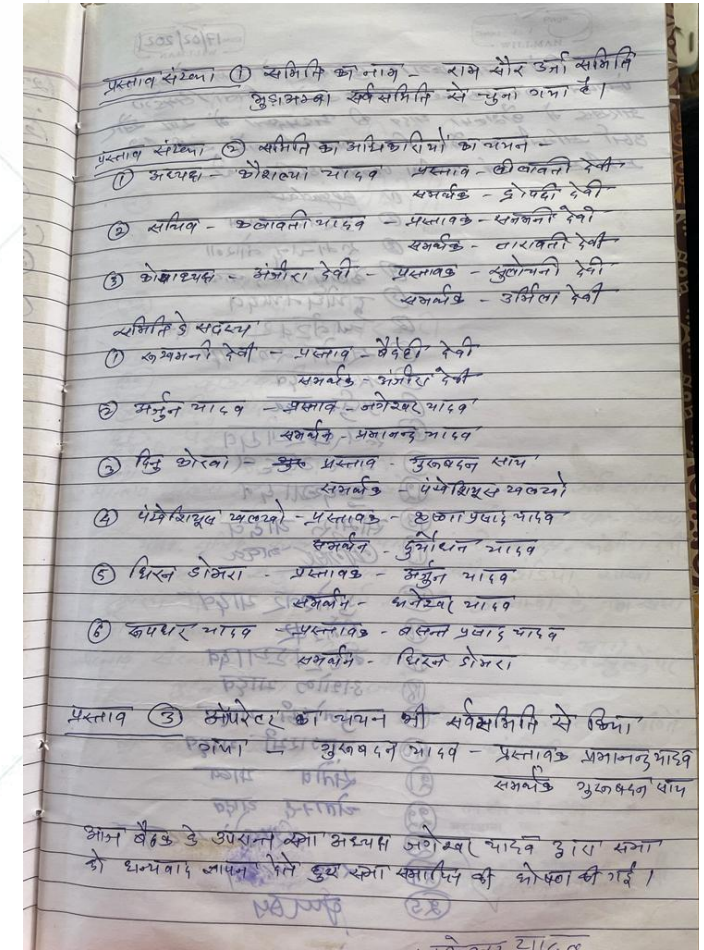 प्रस्ताव संख्या ① समिति का नाम - राम सौर उर्जा समिति
सर्वसमिति से चुना गया है।
प्रस्ताव संख्या ② समिति का अधिकारियों का चयन -
① अध्यक्ष - कौशल्या यादव प्रस्ताव - लीलावती देवी
समर्थक - द्रोपदी देवी
② सचिव - कलावती यादव - प्रस्तावक - देवी
समर्थक - तारावती देवी
③ कोषाध्यक्ष - मंजीरा देवी - प्रस्तावक - सुलोचनी देवी
समर्थक - उर्मिला देवी
समिति के सदस्य
① रूखमनी देवी - प्रस्ताव - बैदेही देवी
समर्थक - मंजीरा देवी
② अर्जुन यादव - प्रस्ताव - जगेश्वर यादव
समर्थन - प्रमानन्द यादव
③ दिनु कोरवा - प्रस्ताव - गुरूबदन साय
समर्थक - खलखो
④ खलखो - प्रस्तावक - कृष्णा प्रसाद यादव
समर्थन - दुर्योधन यादव
⑤ धिरन डोमरा प्रस्तावक - अर्जुन यादव
समर्थन - धनेश्वर यादव
⑥ रूपधर यादव - प्रस्तावक - बसन्त प्रसाद यादव
समर्थन - धिरन डोमरा
प्रस्ताव ③ ऑपरेटर का चयन भी सर्वसमिति से किया
गया - गुरूबदन यादव - प्रस्तावक प्रमानन्द यादव
समर्थक गुरूबदन साय
आज बैठक के उपरान्त सभा अध्यक्ष जगेश्वर यादव द्वारा सभा
को धन्यवाद ज्ञापन देते हुए सभा समाप्ति की घोषणा की गई।
यादव